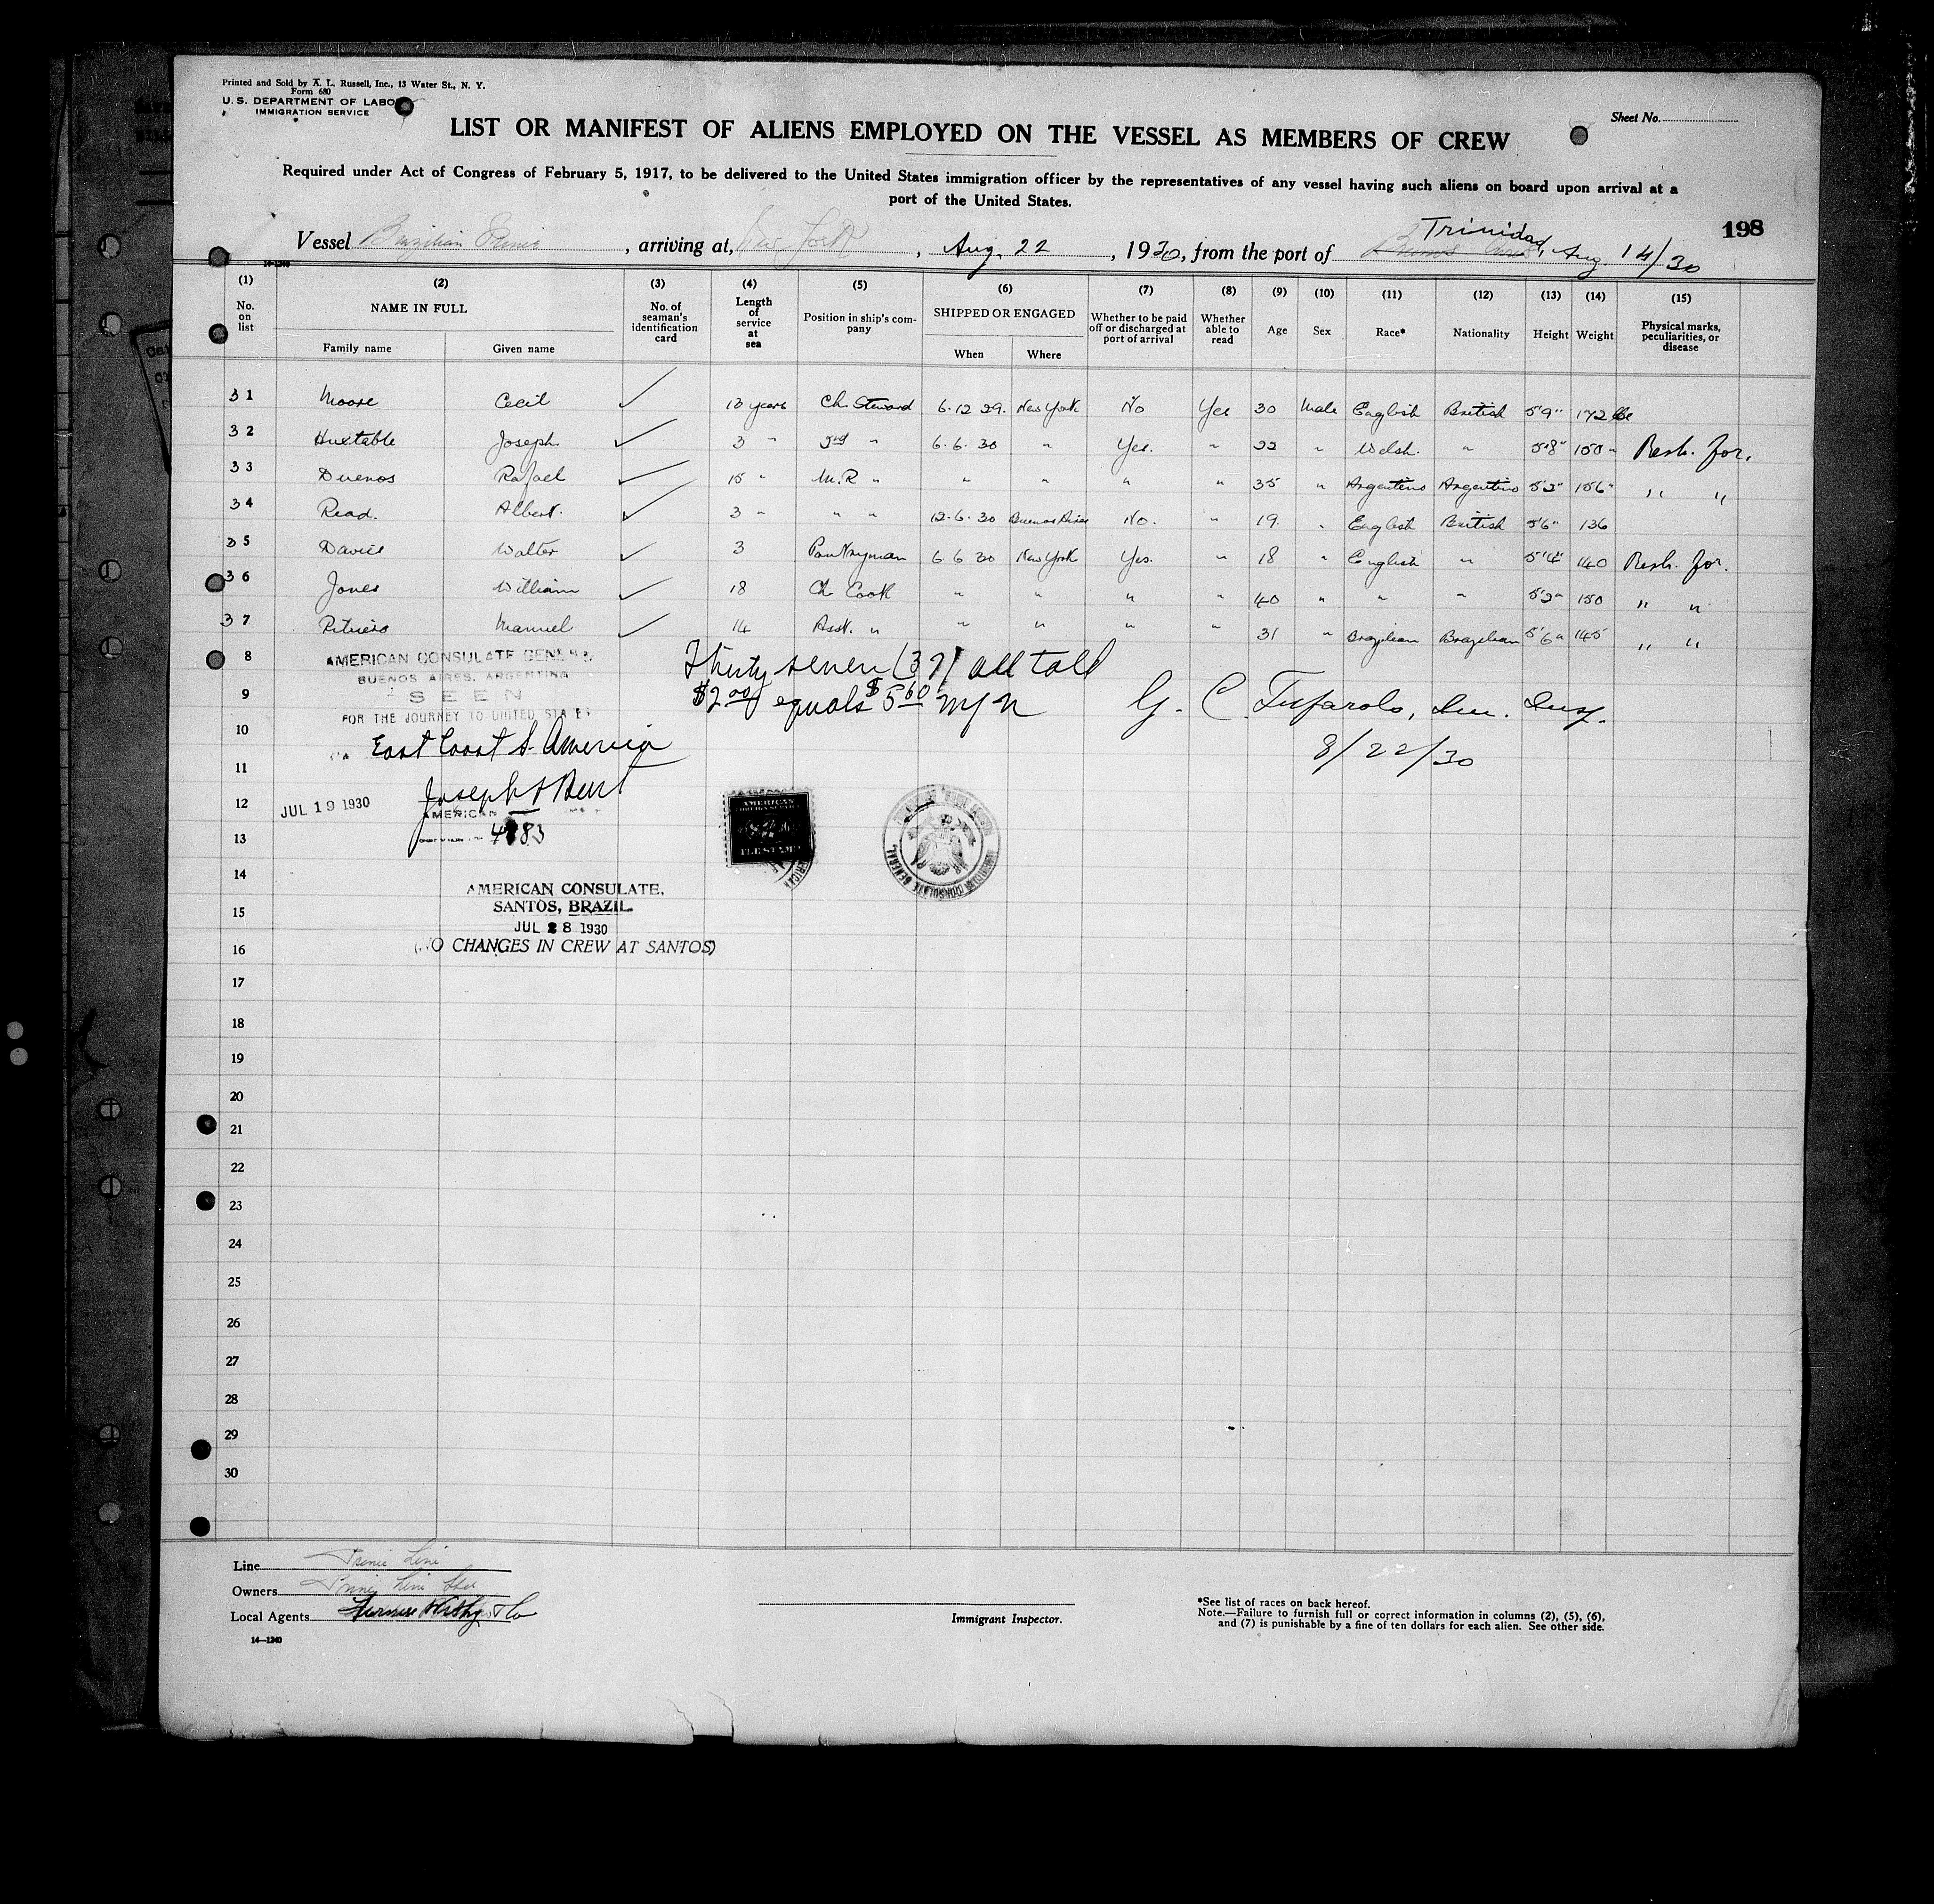 Printed and Sold by A. L. Russell, Inc., 13 Water St., N. Y.
Form 680
U. S. DEPARTMENT OF LABOR
IMMIGRATION SERVICE
Sheet No.
LIST OR MANIFEST OF ALIENS EMPLOYED ON THE VESSEL AS MEMBERS OF CREW
Required under Act of Congress of February 5, 1917, to be delivered to the United States immigration officer by the representatives of any vessel having such aliens on board upon arrival at a
port of the United States.
198
Vessel Brazilian Prince, arriving at, New York, Aug. 22, 1930, from the port of Buenos Aires Trinidad, Aug. 14/30
14-1240
(1) (2) (3) (4) (5) (6) (7) (8) (9) (10) (11) (12) (13) (14) (15)
No. on list NAME IN FULL Family name Given name No. of seaman's identification card Length of service at sea Position in ship's company SHIPPED OR ENGAGED When Where Whether to be paid off or discharged at port of arrival Whether able to read Age Sex Race* Nationality Height Weight Physical marks, peculiarities, or disease
31 Moore Cecil ✓ 13 years Ch. Steward 6.12.29. New York No Yes 30 Male English British 5'9" 172 lbs
32 Huxtable Joseph ✓ 3 " 2nd " 6.6.30 " Yes. " 22 " Welsh. " 5'8" 150 " Resh. for.
33 Duenos Rafael ✓ 15 " M.R " " " " " 35 " Argentino Argentino 5'2" 156 " " "
34 Read. Albert. ✓ 3 " " " 12.6.30 Buenos Aires No. " 19. " English British 5'6" 136
35 Davies Walter ✓ 3 Pantryman 6 6 30 New York Yes. " 18 " English " 5'4" 140 Resh. for.
36 Jones William ✓ 18 Ch. Cook " " " " 40 " " " 5'2" 150 " "
37 Manuel ✓ 14 Asst. " " " " " 31 " Brazilian Brazilian 5'6" 145 " "
8
AMERICAN CONSULATE GENERAL
Thirty seven (37) all told
BUENOS AIRES, ARGENTINA
9
SEEN
$2.00 equals $5.60 m/n
G. C. Tufarolo, Imm. Insp.
FOR THE JOURNEY TO UNITED STATES
10
VIA East Coast S. America
8/22/30
11
12
JUL 19 1930
Joseph Burt
AMERICAN
13
AMERICAN
FOREIGN SERVICE
FEE STAMP
AMERICAN CONSULATE GENERAL
14
AMERICAN CONSULATE,
15
SANTOS, BRAZIL.
JUL 28 1930
16
(NO CHANGES IN CREW AT SANTOS)
17
18
19
20
21
22
23
24
25
26
27
28
29
30
Line Prince Line
Owners Prince Line Ltd
Local Agents Furness Withy & Co
14—1240
Immigrant Inspector.
*See list of races on back hereof.
Note.—Failure to furnish full or correct information in columns (2), (5), (6),
and (7) is punishable by a fine of ten dollars for each alien. See other side.